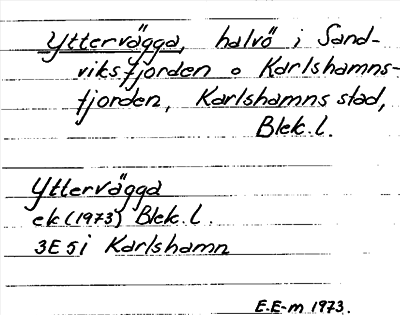 Yttervägga, halvö i Sand-
viksfjorden o Karlshamns-
fjorden, Karlshamns stad,
Blek. l.
Yttervägga
ek (1973) Blek. l.
3E 5i Karlshamn
E.E-m 1973.